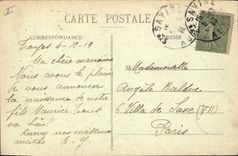 CARTE POSTALE
CORRESPONDANCE
Troyes 4-12-19
Ma chère marraine
Nous avons le plaisir
de vous annoncer
la naissance de notre
petit Maurice. Tout
va bien
Recevez nos meilleures
amitiés
Mademoiselle
Angèle Balduc
6 Villa de Saxe (VII)
Paris